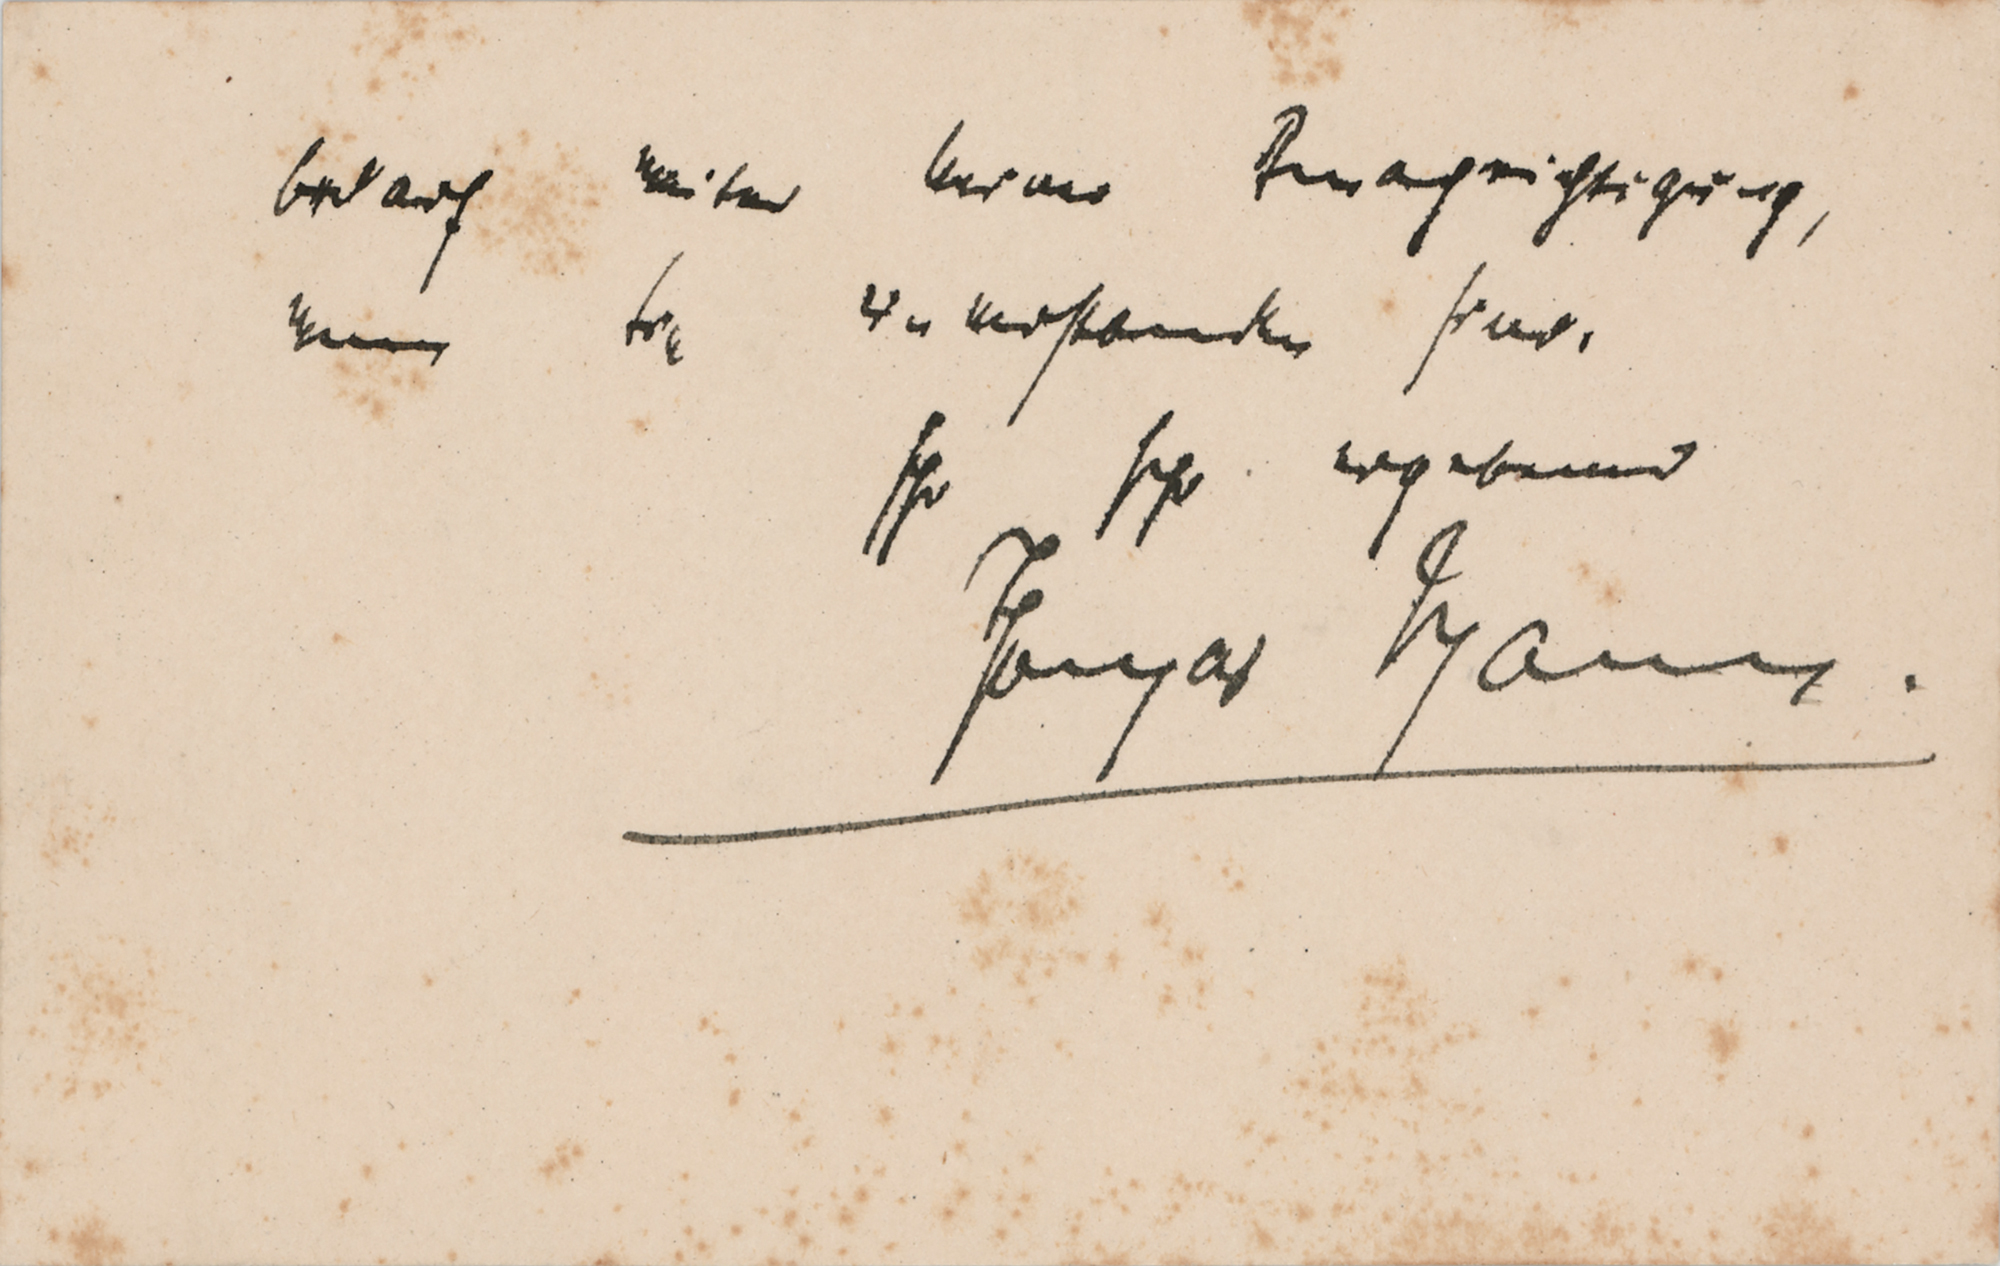 bedarf weiter keiner Benachrichtigung,
wenn Sie einverstanden sind.
Ihr sehr ergebener
Thomas Mann.